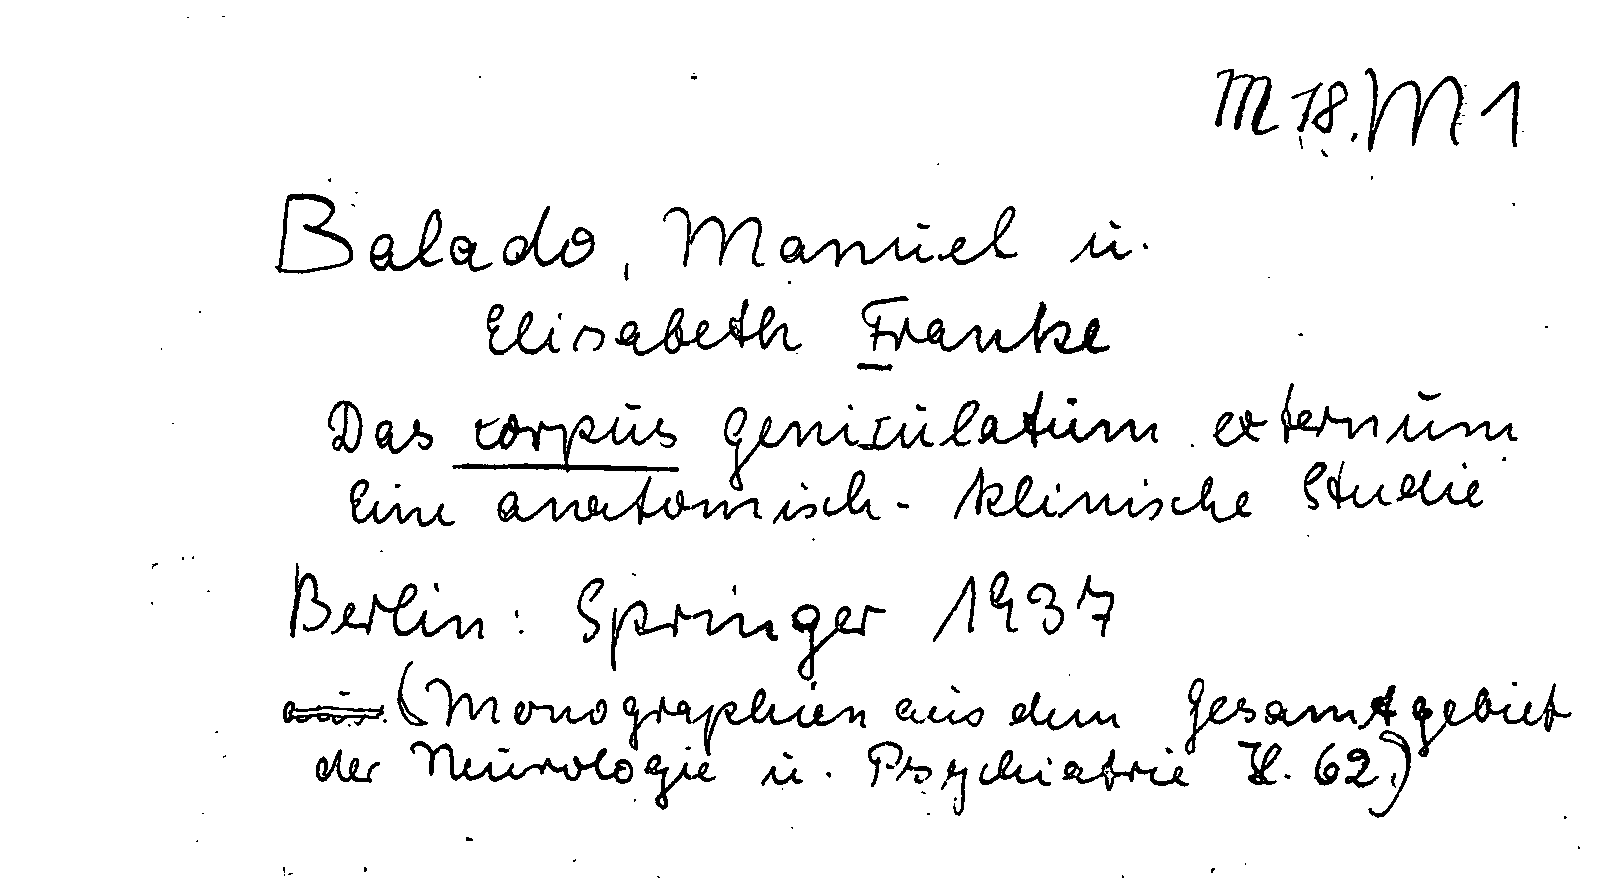 M 78. M 1
Balado, Manuel u.
Elisabeth Franke
Das corpus geniculatum externum
Eine anatomisch-klinische Studie
Berlin: Springer 1937
(Monographien aus dem Gesamtgebiet
der Neurologie u. Psychiatrie H. 62.)